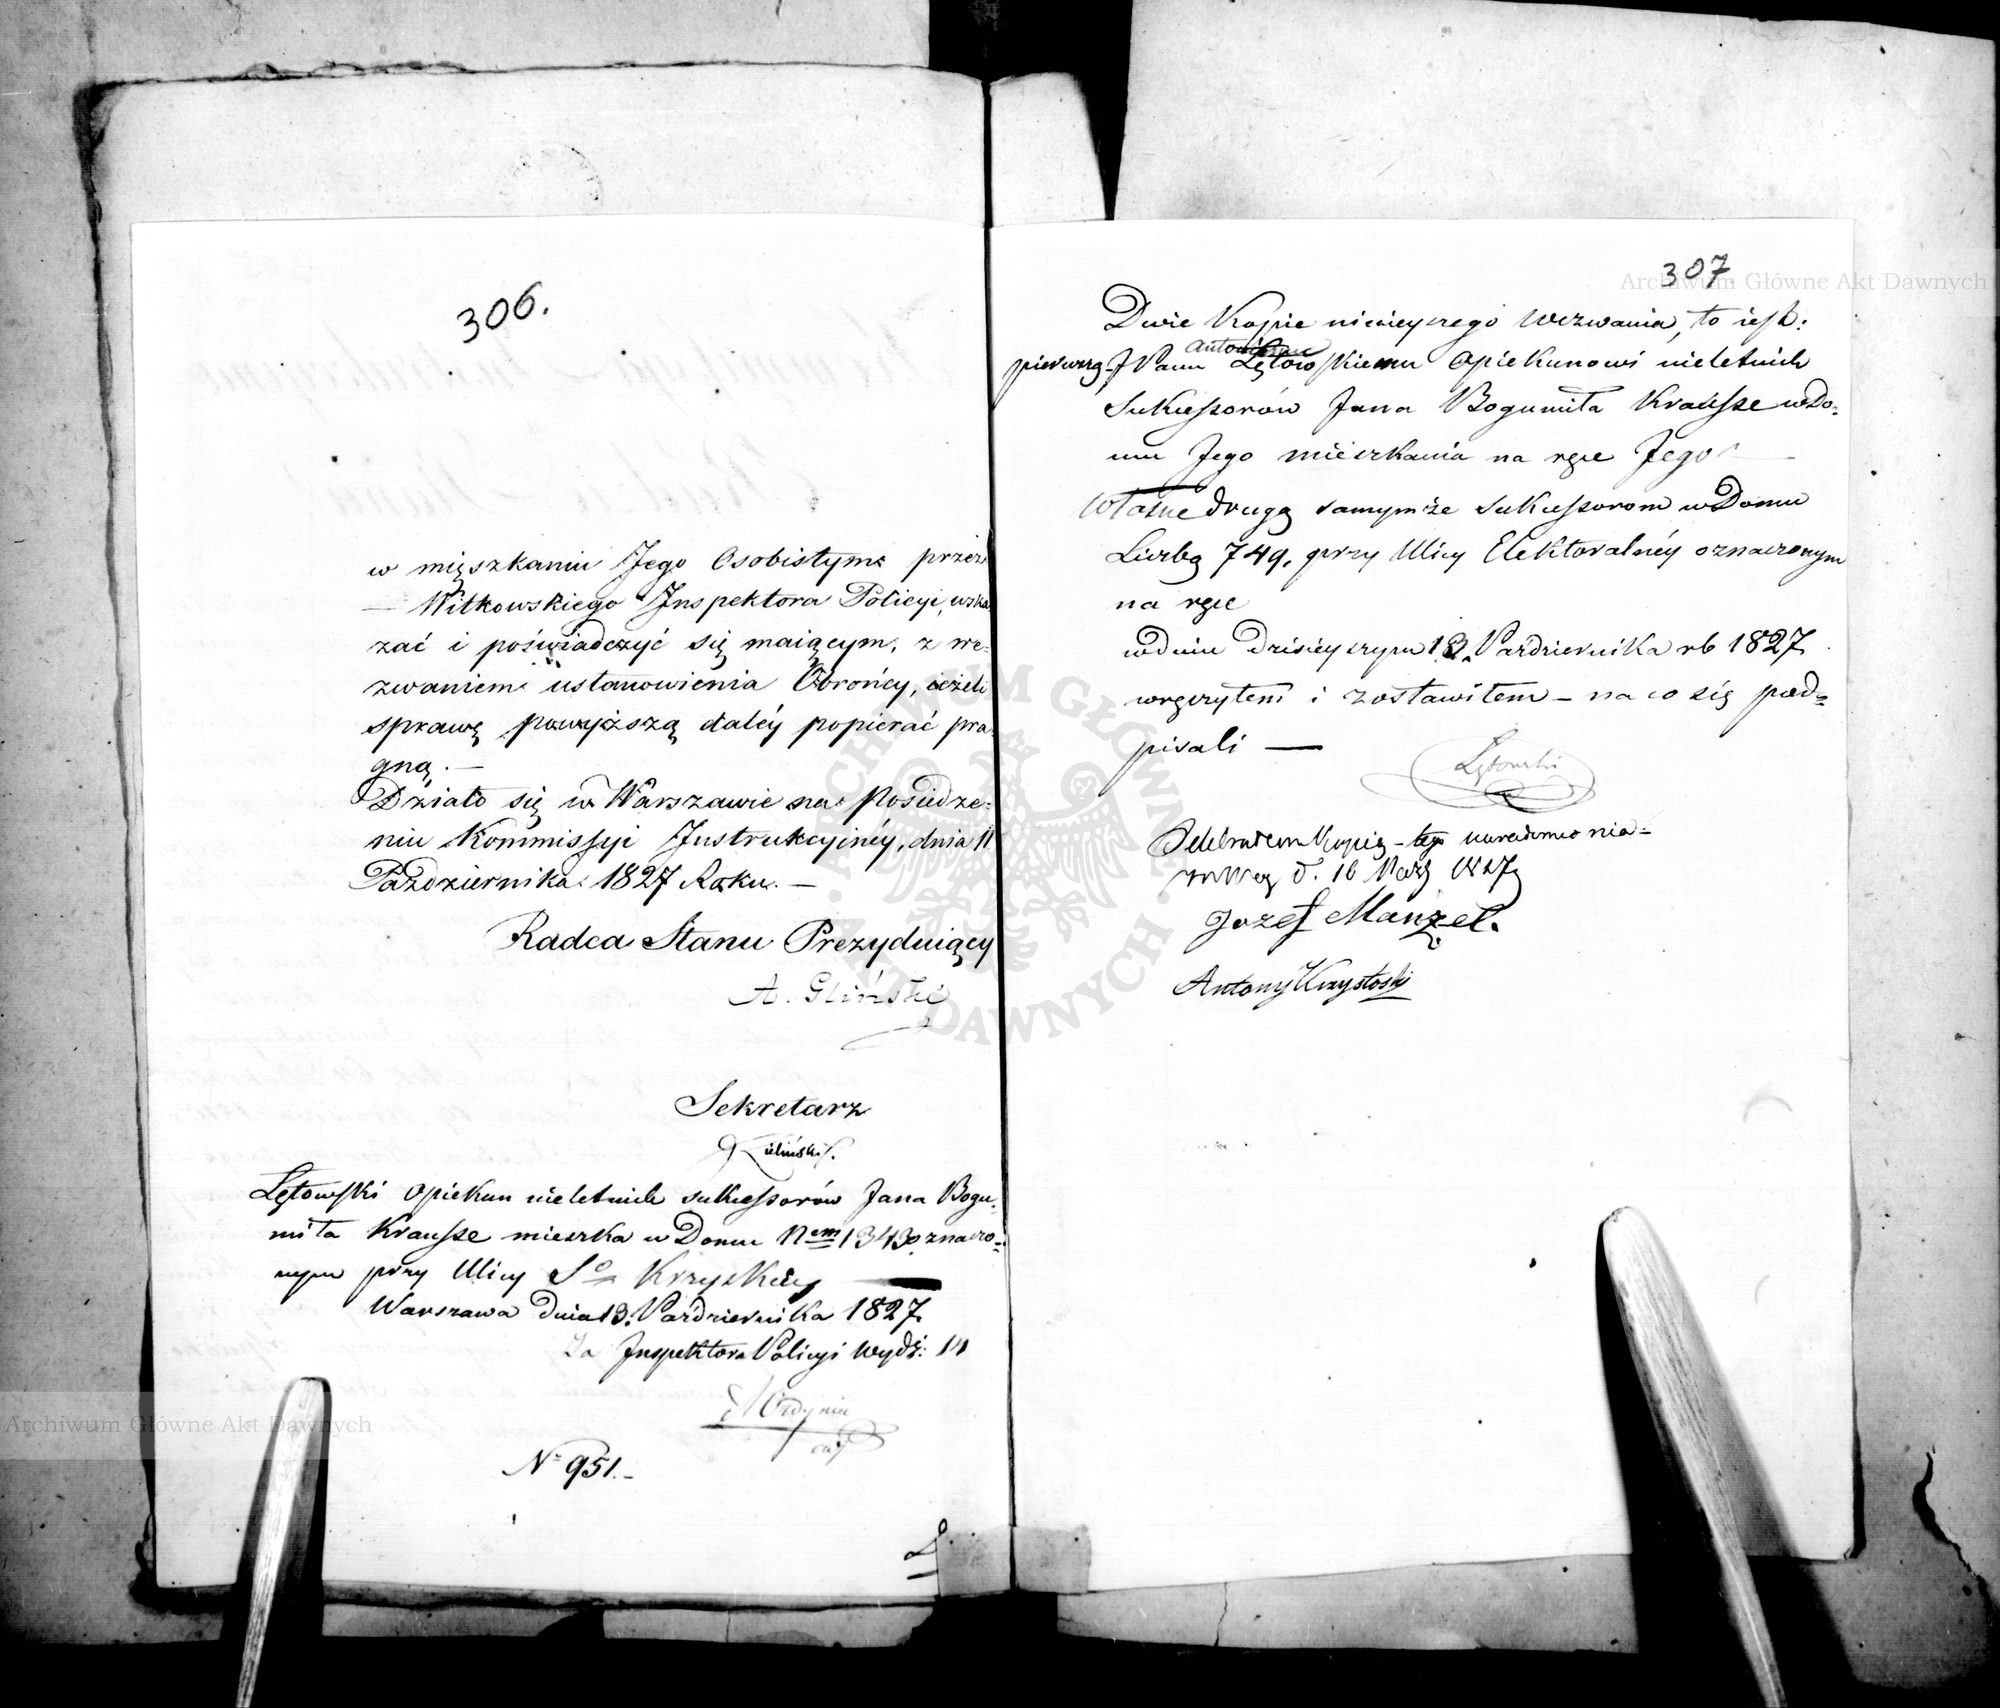 306.
w mięszkaniu Jego Osobistym przez
— Witkowskiego Inspektora Policyi, wska-
zać i poświadczyć się maiącym, z we-
zwaniem ustanowienia Obrońcy, ieżeli
sprawę powyższą daléy popierać pra-
gną. —
Działo się w Warszawie na Posiedze-
niu Kommissyi Instrukcyinéy, dnia 11
Października 1827 Roku. —
Radca Stanu Prezyduiący
A. Gliński
Sekretarz
Zieliński
Lętowski Opiekun nieletnich sukcessorów Jana Bogu-
miła Krausse mieszka w Domu Nem 1343 oznaczo-
nym przy Ulicy So Krzyzkiey
Warszawa Dnia 13. Października 1827
Za Inspektora Policyi Wydz: III
No 951. —
307
Dwie Kopie ninieyszego Wezwania, to iest:
pierwszą JPanu Antoniemu Lętowskiemu Opiekunowi nieletnich
Sukcessorów Jana Bogumiła Krausse w Do-
mu Jego mieszkania na ręce Jego
Własne drugą samymże sukcessorom w Domu
Liczbą 749. przy Ulicy Elektoralnéy oznaczonym
na ręce
w dniu Dzisieyszym 13. Października rb 1827
wręczyłem i zostawiłem — na co się pod-
pisali —
Lętowski
Odebrałem Kopią tego uwiadomienia
d. 16 1827
Jozef Manzel.
Antony Krzystoski
Archiwum Główne Akt Dawnych
Archiwum Główne Akt Dawnych
ARCHIWUM GŁÓWNE AKT DAWNYCH